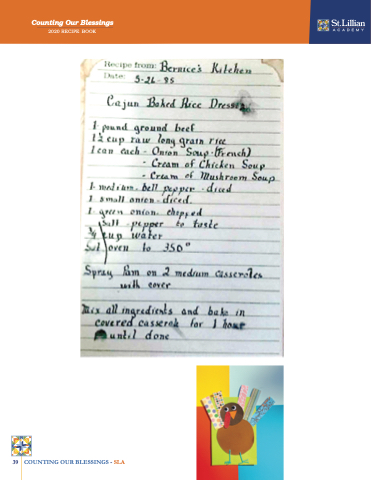 Counting Our Blessings
2020 RECIPE BOOK
St.Lillian
ACADEMY
Recipe from: Bernice's Kitchen
Date: 5-26-95
Cajun Baked Rice Dressing
1 pound ground beef
1½ cup raw long grain rice
1 can each - Onion Soup (French)
- Cream of Chicken Soup
- Cream of Mushroom Soup
1 medium bell pepper - diced
1 small onion - diced
1 green onion, chopped
Salt pepper to taste
¾ cup water
Set oven to 350°
Spray Pam on 2 medium casseroles
with cover
Mix all ingredients and bake in
covered casserole for 1 hour
until done
39 COUNTING OUR BLESSINGS - SLA